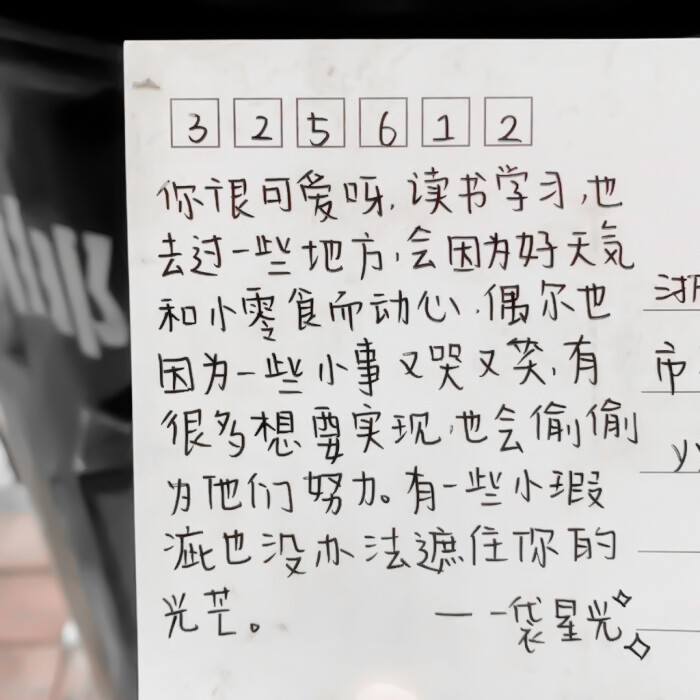 325612
你很可爱呀,读书学习,也
去过一些地方,会因为好天气
和小零食而动心,偶尔也
因为一些小事又哭又笑,有
很多想要实现,也会偷偷
为他们努力。有一些小瑕
疵也没办法遮住你的
光芒。
——一袋星光
市